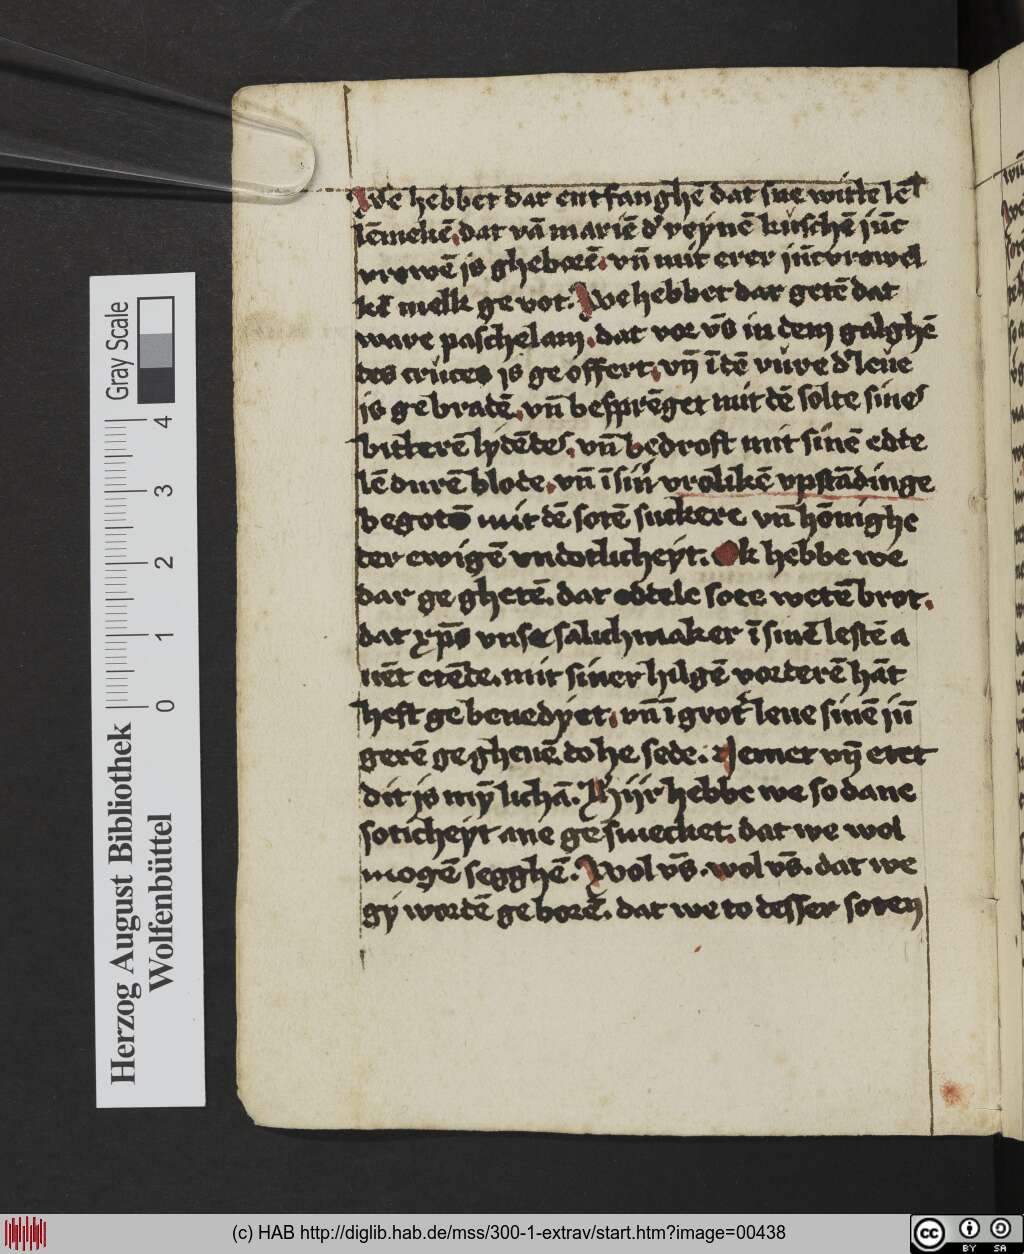 We hebbet dar entfanghē dat sne witte lē
lēmekē. dat vā mariē dʼ reynē kuschē jūc
vrowē js gheborē. vn̄ mit erer jūcvrowel
kē melk ge vot. We hebbet dar getē dat
ware paschelam. dat vor vs̄ in dem galghē
des cruces js ge offert. vn̄ ī dē vure dʼ leue
js ge bradē. vn̄ besprēget mit dē solte sines
bitterē lydēdes. vn̄ bedroft mit sinē edte
lē durē blode. vn̄ ī sinʼ vrolikē vpstādinge
begotē mit dē sotē suckere vn̄ hōnighe
der ewigē vndotlicheyt. Ok hebbe we
dar ge ghetē. dat edtele sote wetē brot.
dat xp̄s vnse salichmaker ī sinē lestē a
uēt etēde. mit siner hilgē vorderē hāt
heft ge benedyet. vn̄ ī grotʼ leue sinē jū
gerē ge gheuē. do he sede. Nemet vn̄ etet
dit js mȳ lichā. Hijr hebbe we so dane
soticheyt ane ge smecket. dat we wol
mogē segghē. Wol vs̄. wol vs̄. dat we
gy wordē ge borē. dat we to desser soten
Herzog August Bibliothek
Wolfenbüttel
Gray Scale
0 1 2 3 4
(c) HAB http://diglib.hab.de/mss/300-1-extrav/start.htm?image=00438
cc BY SA